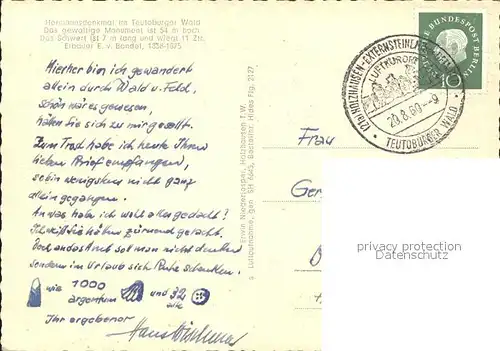 Hermannsdenkmal im Teutoburger Wald
Das gewaltige Monument ist 54 m hoch
Das Schwert ist 7 m lang und wiegt 11 Ztr.
Erbauer E. v. Bandel, 1838-1875
Hierher bin ich gewandert
allein durch Wald u. Feld.
Schön wär es gewesen,
hätten Sie sich zu mir gesellt.
Zum Trost habe ich heute Ihren
lieben Brief empfangen,
so bin wenigstens nicht ganz
allein gegangen.
An was habe ich wohl alles gedacht?
Ich weiß Sie hätten zürnend gelacht.
Doch an das Amt soll man nicht denken
sondern im Urlaub sich Ruhe schenken.
wie 1000
argentum und 32
Ihr ergebener
Erwin Niegenjasper, Holzhausen i. W.
Luftaufnahme, gen.
Frau
DEUTSCHE BUNDESPOST BERLIN
10
(21a) HOLZHAUSEN-EXTERNSTEINE
LUFTKURORT
20.8.60--9
TEUTOBURGER WALD
privacy protection
Datenschutz